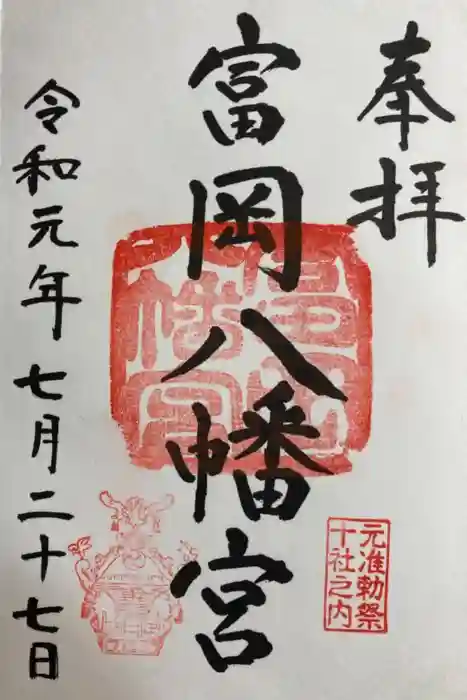 奉拝
富岡八幡宮
元准勅祭
十社之内
令和元年七月二十七日